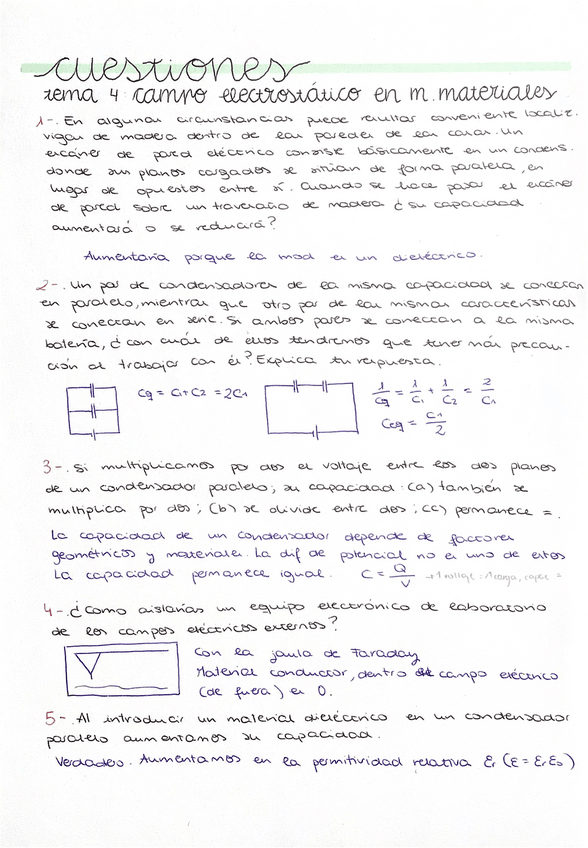 cuestiones
tema 4 campo electrostático en m. materiales
1-. En algunas circunstancias puede resultar conveniente localiz.
vigas de madera dentro de las paredes de las casas. Un
escáner de pared eléctrico consiste básicamente en un condens.
donde sus planos cargados se sitúan de forma paralela, en
lugar de opuestos entre sí. Cuando se hace pasar el escáner
de pared sobre un travesaño de madera ¿su capacidad
aumentará o se reducirá?
Aumentaría porque la mad es un dieléctrico.
2-. Un par de condensadores de la misma capacidad se conectan
en paralelo, mientras que otro par de las mismas características
se conectan en serie. Si ambos pares se conectan a la misma
batería, ¿con cuál de ellos tendremos que tener más precau-
ción al trabajar con él? Explica tu respuesta.
Cq = C1 + C2 = 2C1
1/Cq = 1/C1 + 1/C2 = 2/C1
Ceq = C1/2
3-. Si multiplicamos por dos el voltaje entre los dos planos
de un condensador paralelo; su capacidad: (a) también se
multiplica por dos; (b) se divide entre dos; (c) permanece =.
La capacidad de un condensador depende de factores
geométricos y materiales. La dif de potencial no es uno de estos
La capacidad permanece igual. C = Q/V
4-. ¿Cómo aislarías un equipo electrónico de laboratorio
de los campos eléctricos externos?
Con la jaula de Faraday
Material conductor, dentro campo eléctrico
(de fuera) es 0.
5-. Al introducir un material dieléctrico en un condensador
paralelo aumentamos su capacidad.
Verdadero. Aumentamos en la permitividad relativa εr (ε = εrε0)